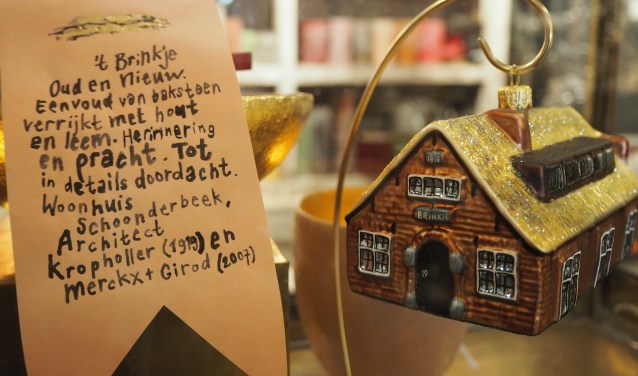 't Brinkje
Oud en nieuw.
Eenvoud van baksteen
verrijkt met hout
en leem. Herinnering
en pracht. Tot
in details doordacht.
Woonhuis
Schoonderbeek,
Architect
Kropholler (1919) en
Merckx + Girod (2007)
BRINKJE
19